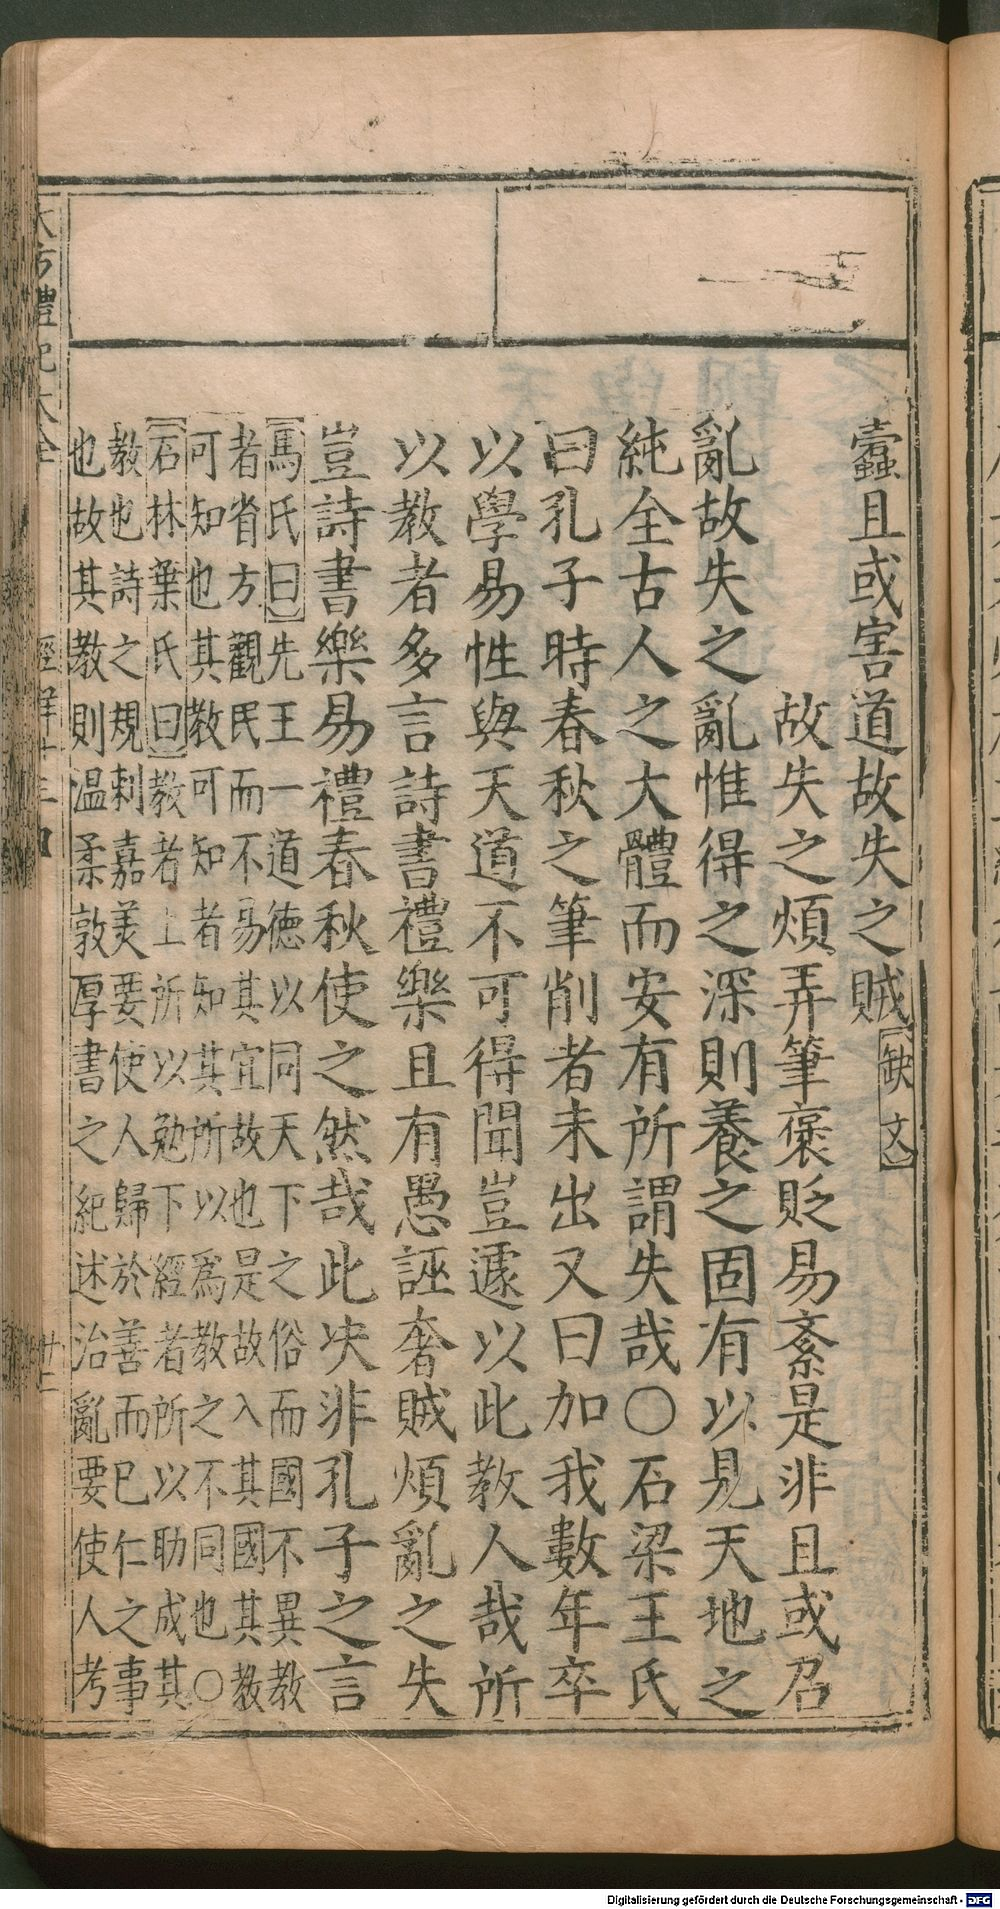 蠹且或害道故失之賊【缺文】
故失之煩弄筆褒貶易紊是非且或召
亂故失之亂惟得之深則養之固有以見天地之
純全古人之大體而安有所謂失哉○石梁王氏
曰孔子時春秋之筆削者未出又曰加我數年卒
以學易性與天道不可得聞豈遽以此教人哉所
以教者多言詩書禮樂且有愚誣奢賊煩亂之失
豈詩書樂易禮春秋使之然哉此决非孔子之言
【馬氏曰】先王一道德以同天下之俗而國不異教
者省方觀民而不易其宜故也是故入其國其教
可知也其教可知者知其所以爲教之不同也○
【石林葉氏曰】教者上所以勉下經者所以助成其
教也詩之規刺嘉美要使人歸於善而已仁之事
也故其教則温柔敦厚書之紀述治亂要使人考
大方禮記大全
經解廿三
廿三
Digitalisierung gefördert durch die Deutsche Forschungsgemeinschaft - DFG